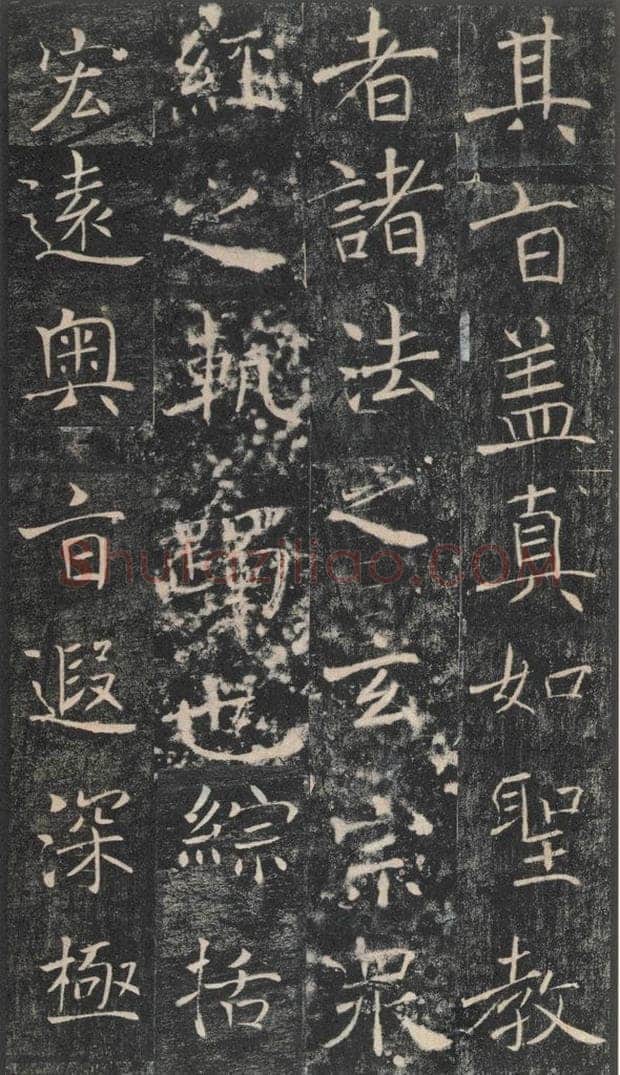 其旨盖真如聖教
者諸法之玄宗衆
經之軌躅也綜括
宏遠奥旨遐深極
Shufaziliao.COM